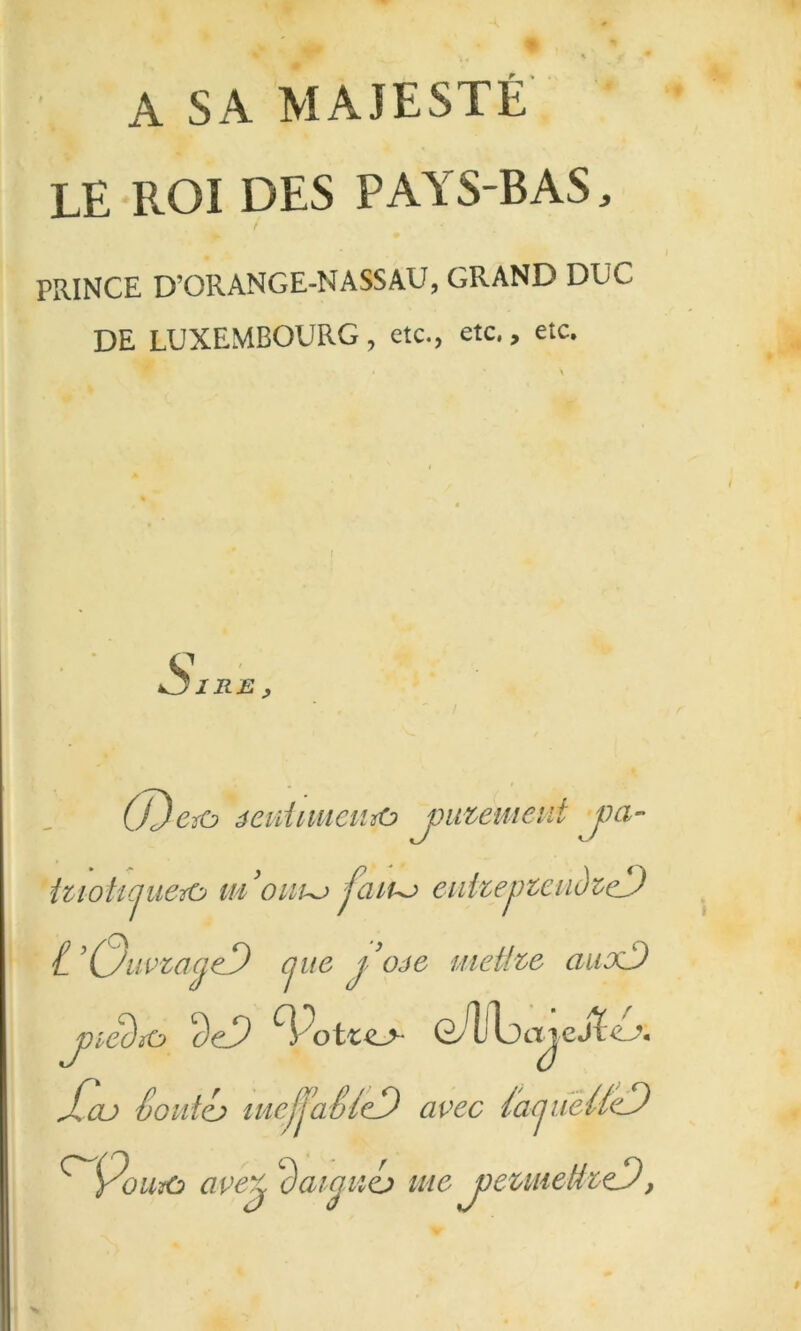 A SA MAJESTÉ
LE ROI DES PAYS-BAS,
PRINCE D'ORANGE-NASSAU, GRAND DUC
DE LUXEMBOURG, etc., etc., etc.
SIRE,
Des sentimens purement pa-
triotiques m'ont fait entreprendre
l'Ouvrage que j'ose mettre aux
pieds de Votre Majesté.
La bonté ineffable avec laquelle
Vous avez daigné me permettre,